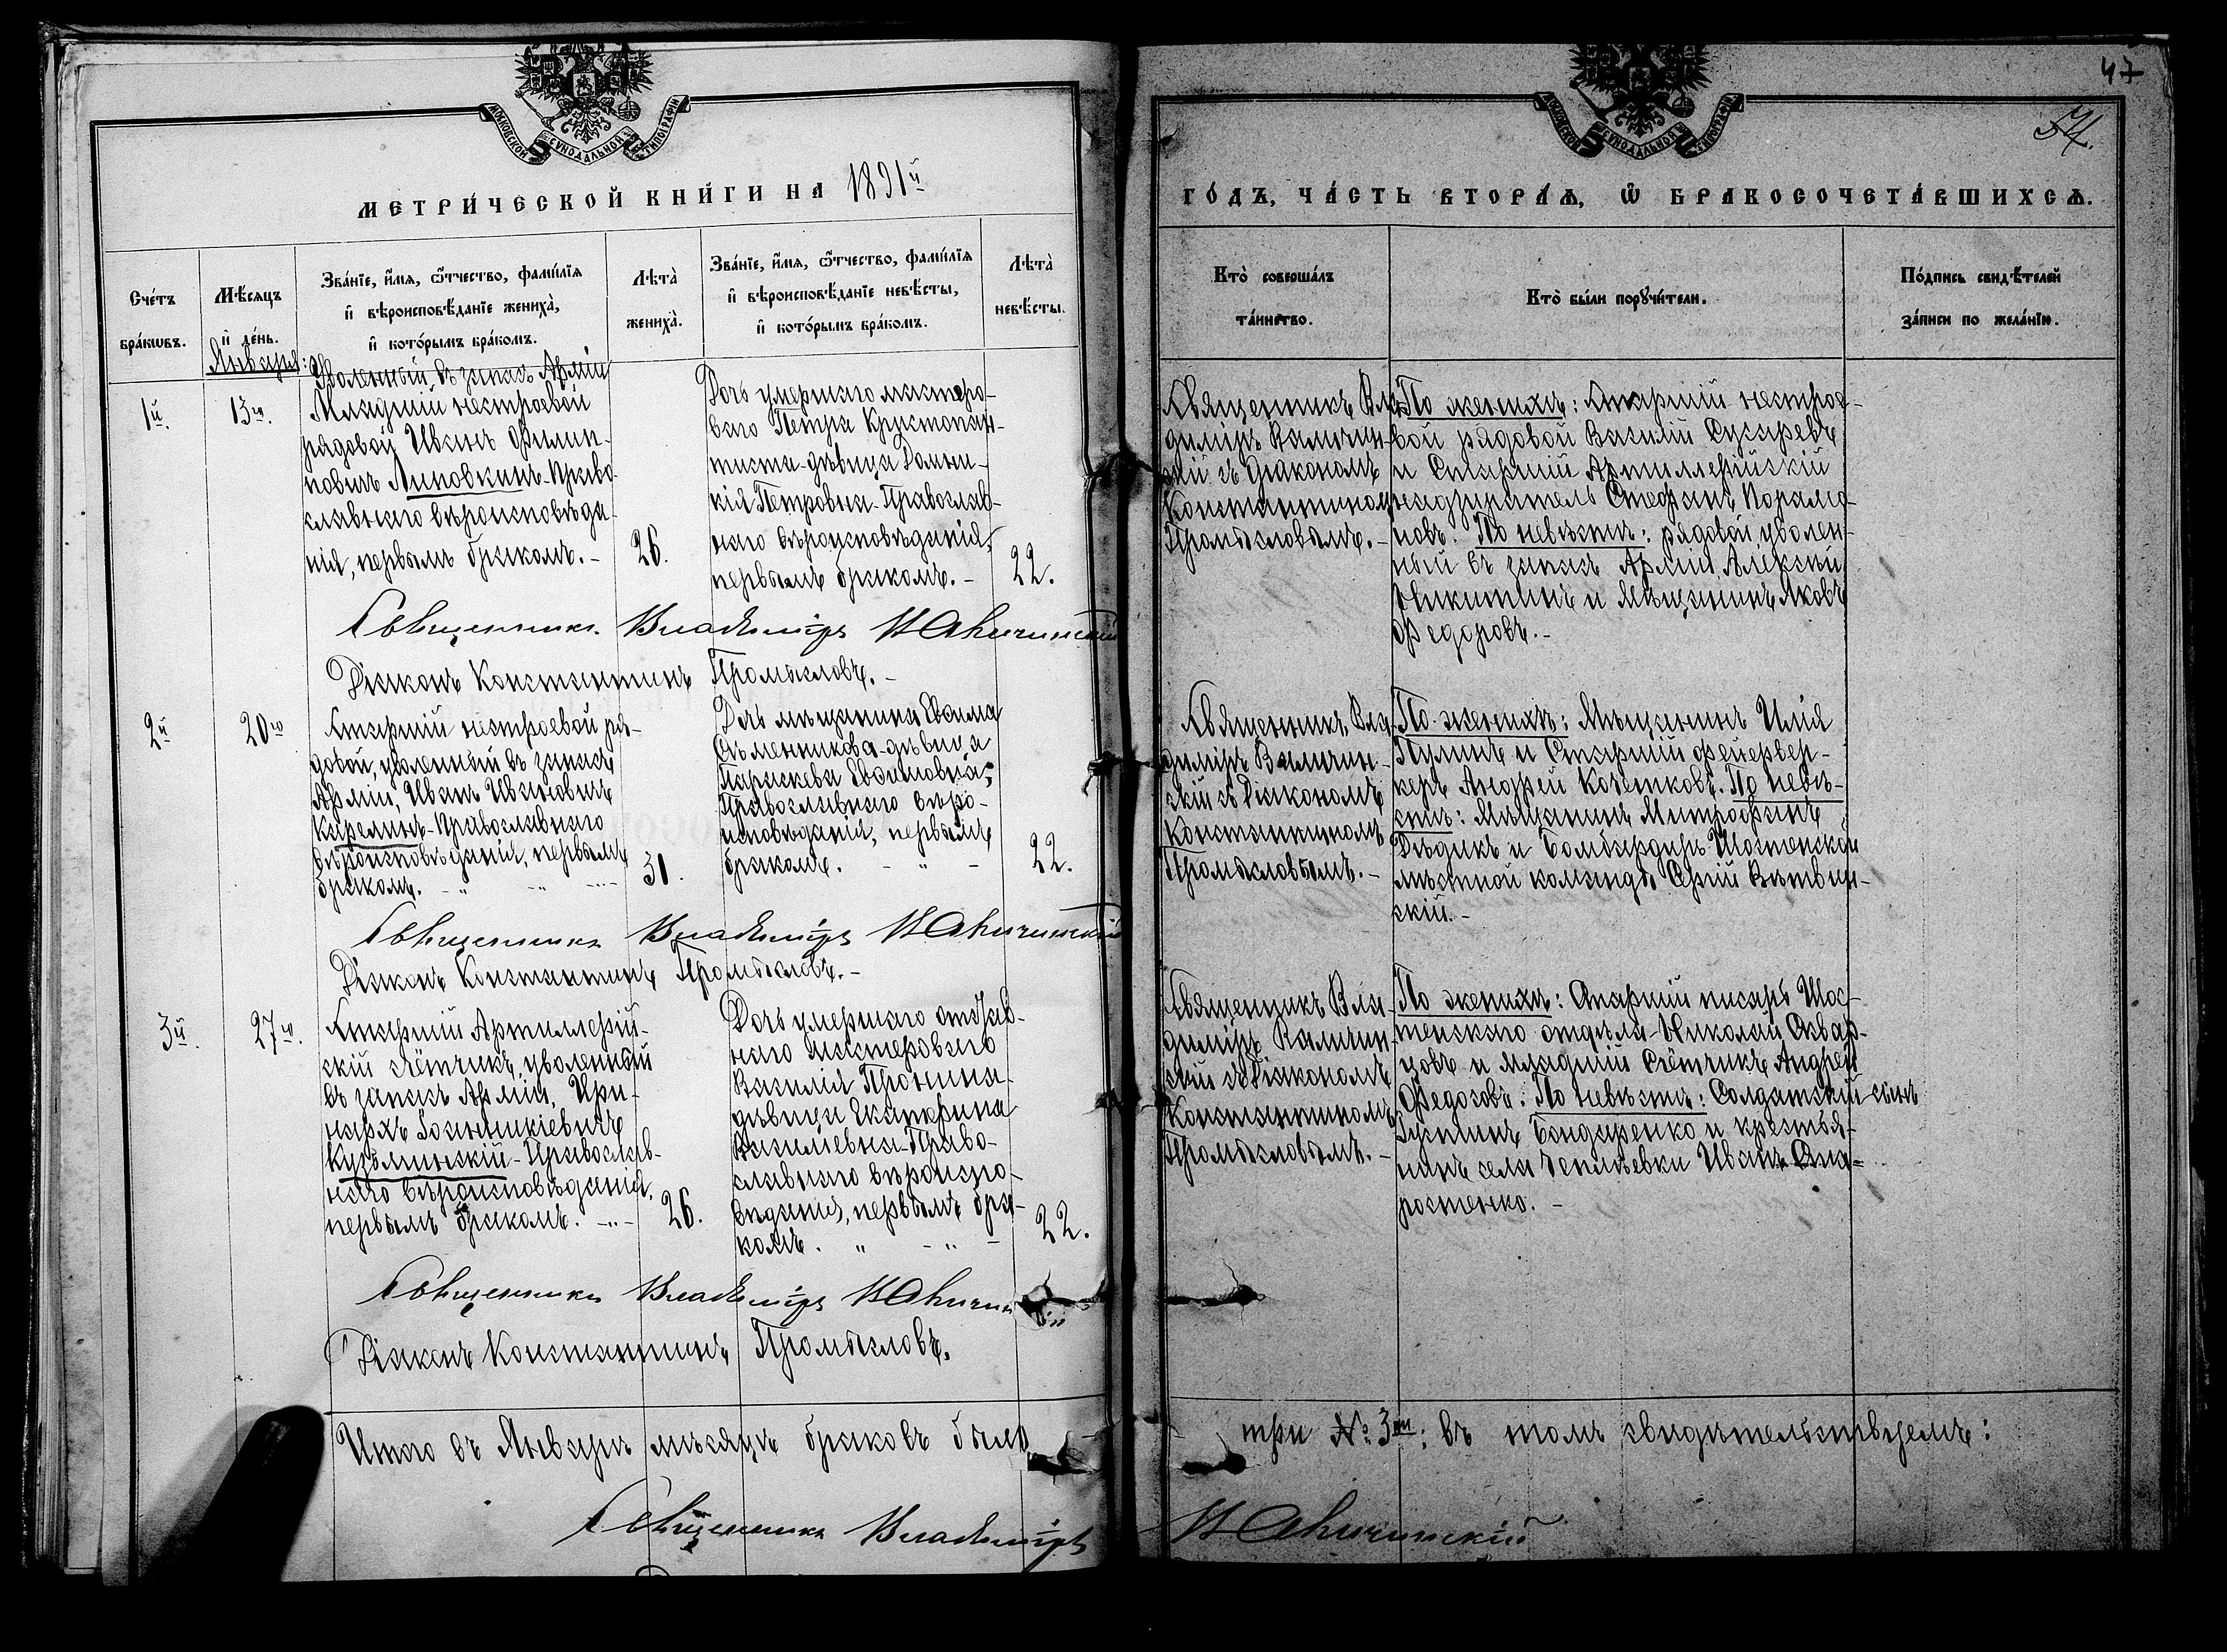 47
54.
МОСКОВСКОЙ СѴНОДАЛЬНОЙ ТИПОГРАФІИ
МОСКОВСКОЙ СѴНОДАЛЬНОЙ ТИПОГРАФІИ
МЕТРИ́ЧЕСКОЙ КНИ́ГИ НА 1891й
ГО́ДЪ, ЧА́СТЬ ВТОРА́Ѧ, Ѿ БРАКОСОЧЕТА́ВШИХСѦ.
Сче́тъ
бра́кѡвъ.
Мѣ́сѧцъ
и҆ де́нь.
Зва́нїе, и҆́мѧ, ѻ҆́тчество, фами́лїѧ
и҆ вѣроисповѣ́данїе жениха̀,
и҆ кото́рымъ бра́комъ.
Лѣ́та̀
жениха̀.
Зва́нїе, и҆́мѧ, ѻ҆́тчество, фами́лїѧ
и҆ вѣроисповѣ́данїе невѣ́сты,
и҆ кото́рымъ бра́комъ.
Лѣ́та̀
невѣ́сты.
Кто̀ соверша́лъ
та́инство.
Кто̀ бы́ли порꙋчи́тели.
По́дпись свидѣ́телей
за́писи по жела́нїю.
Января:
1й.
13го.
Уволенный въ запасъ Арміи
Младшій нестроевой
рядовой Иванъ Филип-
повичъ Липовкинъ-Право-
славнаго вѣроисповѣда-
нія, первымъ бракомъ.-
26.
Дочь умершаго мастеро-
ваго Петра
дѣвица Домни-
кія Петровна-Православ-
наго вѣроисповѣданія,
первымъ бракомъ.-
22.
Священникъ Вла-
димиръ
скій съ Діакономъ
Константиномъ
Промысловымъ.-
По женихѣ: Старшій нестрое-
вой рядовой Василій Сухаревъ
и Старшій Артиллерійскій
надзиратель Стефанъ Парамо-
новъ. По невѣстѣ: рядовой, уволен-
ный въ запасъ Арміи, Алексѣй
Никитинъ и Мѣщанинъ Яковъ
Федоровъ.-
Священникъ Владиміръ
Діаконъ Константинъ Промысловъ.-
2й
20го
Старшій нестроевой ря-
довой, уволенный въ запасъ
Арміи, Иванъ Ивановичъ
Карелинъ-Православнаго
вѣроисповѣданія, первымъ
бракомъ.
31.
Дочь мѣщанина Евѳима
дѣвица
Параскева Евѳимовна,
Православнаго вѣро-
исповѣданія, первымъ
бракомъ.
22.
Священникъ Вла-
димиръ
скій съ Діакономъ
Константиномъ
Промысловымъ.-
По женихѣ: Мѣщанинъ Илія
и Старшій фейервер-
керъ Андрей Кочетковъ. По невѣ-
стѣ: Мѣщанинъ Митрофанъ
Дѣдикъ и Бомбардиръ Шостенской
мѣстной команды
скій.-
Священникъ Владиміръ
Діаконъ Константинъ Промысловъ.-
3й.
27го.
Старшій Артиллерій-
скій счётчикъ, уволенный
въ запасъ Арміи, Ири-
нархъ Іоанникіевичъ
Кузьминскій-Православ-
наго вѣроисповѣданія,
первымъ бракомъ.
26.
Дочь умершаго отстав-
наго мастероваго
Василія Пронина
дѣвица Екатерина
Васильевна-Право-
славнаго вѣроиспо-
вѣданія, первымъ бра-
комъ.
22.
Священникъ Вла-
димиръ
скій съ Діакономъ
Константиномъ
Промысловымъ.-
По женихѣ: Старшій писарь Шос-
тенскаго отдѣла-Николай Сквар-
цовъ и младшій Счётчикъ Андрей
Федосовъ. По невѣстѣ: Солдатскій сынъ
Бондаренко и крестья-
нинъ села Чепліевки Иванъ
ростенко.-
Священникъ Владиміръ
Діаконъ Константинъ Промысловъ.
Итого въ Январѣ мѣсяцѣ браковъ было три № 3ри; въ томъ свидѣтельствуемъ:
Священникъ Владиміръ